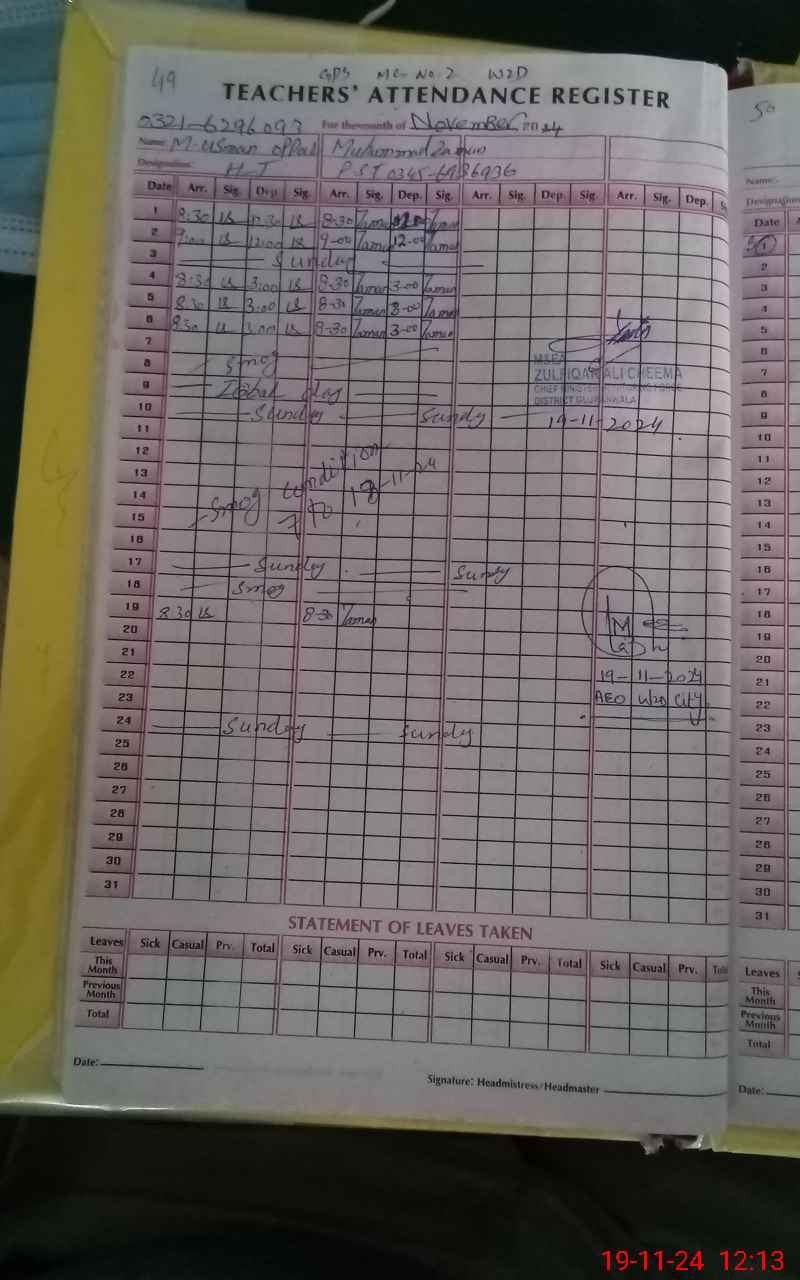 49
GPS MC No. 2 WZD
TEACHERS' ATTENDANCE REGISTER
0321-6296093 For the month of November 2024
Name: M. Usman Muhammad Zaman
Designation: H.T PST 0345-6986936
Date Arr. Sig. Dep. Sig. Arr. Sig. Dep. Sig. Arr. Sig. Dep. Sig. Arr. Sig. Dep.
1 8:30 12:30 8-30 Zaman Zaman
2 9:00 12:00 9-00 Zaman 12-00 Zaman
3 Sunday
4 8:30 3:00 8-30 Zaman 3-00 Zaman
5 8:30 3:00 8-30 Zaman 3-00 Zaman
6 8:30 3:00 8-30 Zaman 3-00 Zaman
7
8 Smog
MEA
ZULFIQAR ALI CHEEMA
CHIEF MINISTER
DISTRICT GUJRANWALA
9 Iqbal day
10 Sunday Sundy
19-11-2024
11
12
13
14 Smog condition
15 7 to 18-11-24
16
17 Sunday Sundy
18 Smog
19 8:30 8-30 Zaman
20
21
22 19-11-2024
23 AEO City
24 Sunday Sundy
25
26
27
28
29
30
31
STATEMENT OF LEAVES TAKEN
Leaves Sick Casual Prv. Total Sick Casual Prv. Total Sick Casual Prv. Total Sick Casual Prv.
This Month
Previous Month
Total
Date:
Signature: Headmistress/Headmaster
50
Name:
Designation
Date
1
2
3
4
5
6
7
8
9
10
11
12
13
14
15
16
17
18
19
20
21
22
23
24
25
26
27
28
29
30
31
Leaves
This Month
Previous Month
Total
Date:
19-11-24 12:13